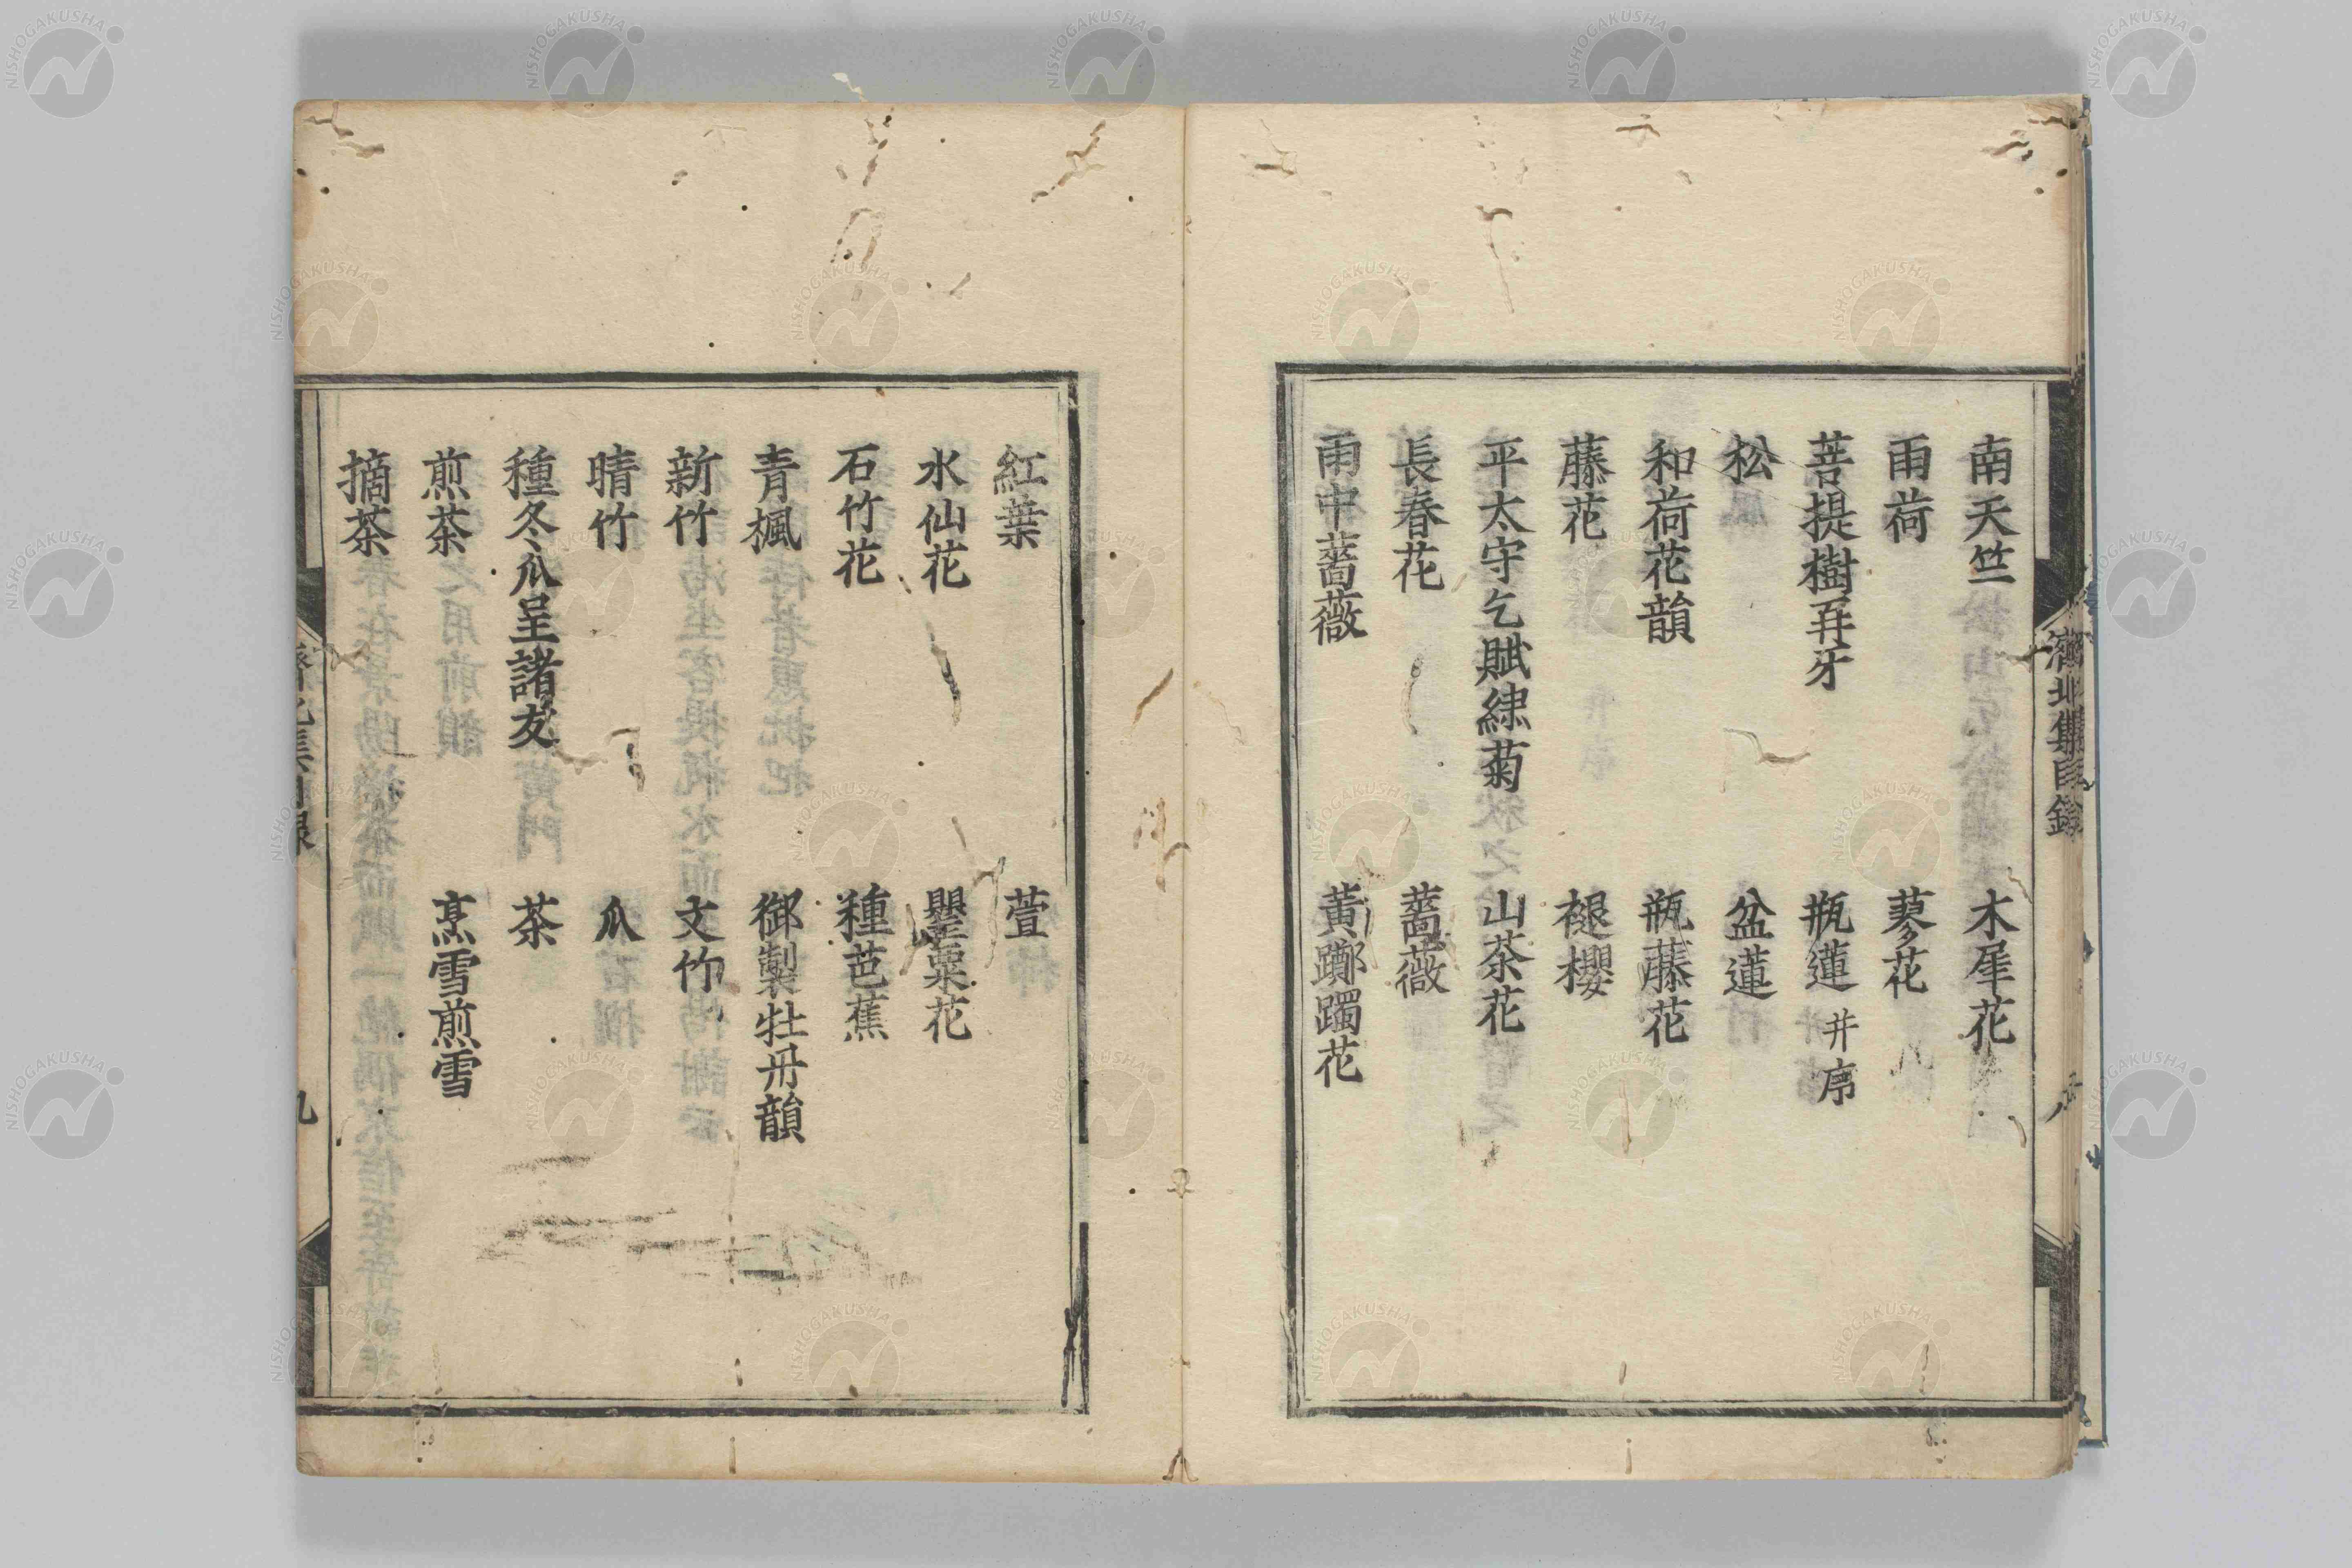 南天竺　木犀花
雨荷　蓼花
菩提樹再牙　瓶蓮 并序
松　盆蓮
和荷花韻　瓶藤花
藤花　褪櫻
平太守乞賦綀菊　山茶花
長春花　薔薇
雨中薔薇　黃躑躅花
濟北集目錄　八
紅葉　萱
水仙花　罌粟花
石竹花　種芭蕉
青楓　御製牡丹韻
新竹　文竹
晴竹　瓜
種冬瓜呈諸友　茶
煎茶　烹雪煎雪
摘茶
濟北集目錄　九
NISHOGAKUSHA